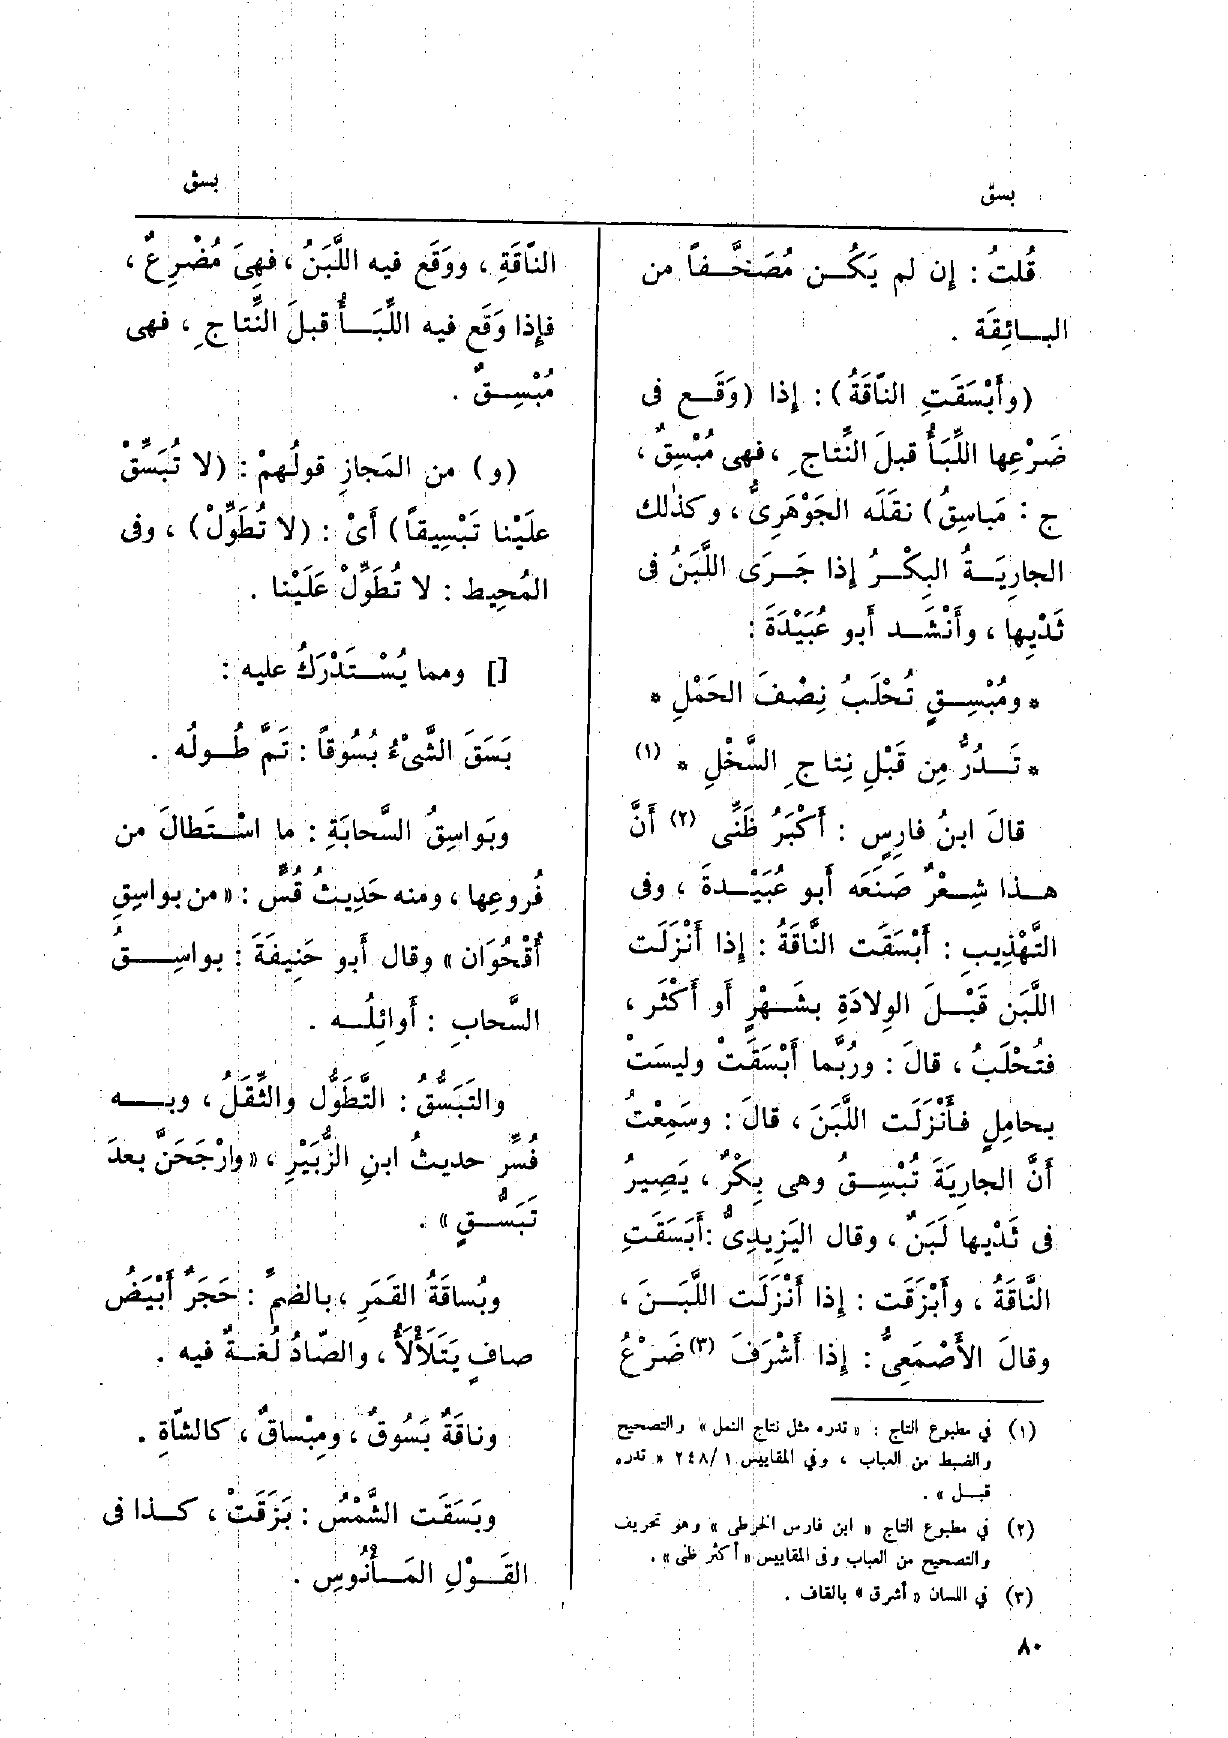 بسق
بسق
قُلتُ : إن لم يَكُــن مُصَحَّــفاً من
البــائِقَة .
(وأَبْسَقَتِ النّاقَةُ) : إذا (وَقَــع فى
ضَرْعِها اللِّبَأُ قبلَ النِّتاجِ ، فهى مُبْسِقٌ ،
ج : مَباسِقُ) نقَلَه الجَوْهَرِىُّ ، وكذٰلك
الجارِيَــةُ البِكْــرُ إذا جَــرَى اللَّبَنُ فى
ثَدْيِها ، وأَنْشَــد أبو عُبَيْدَةَ :
* ومُبْسِــقٍ تُحْلَبُ نِصْفَ الحَمْلِ *
* تَــدُرُّ مِن قَبْلِ نِتاجِ السَّخْلِ * (١)
قالَ ابنُ فارِسٍ : أَكْبَرُ ظَنِّى (٢) أَنَّ
هــذا شِعْرٌ صَنَعَه أبو عُبَيْــدةَ ، وفى
التَّهْذِيبِ : أَبْسَقَت النَّاقَةُ : إذا أَنْزَلَت
اللَّبَن قَبْــلَ الوِلادَةِ بشَــهْرٍ أو أَكْثَر ،
فتُحْلَبُ ، قالَ : ورُبَّما أَبْسَقَتْ وليسَتْ
بحامِلٍ فأَنْزَلَت اللَّبَنَ ، قالَ : وسَمِعْتُ
أَنَّ الجارِيَةَ تُبْسِــقُ وهى بِكْرٌ ، يَصِيرُ
فى ثَدْيِها لَبَنٌ ، وقال اليَزِيدِىُّ : أَبَسَقَتِ
النَّاقَةُ ، وأَبْزَقَت : إذا أَنْزَلَت اللَّبَــنَ ،
وقالَ الأَصْمَعِىُّ : إذا أَشْرَفَ (٣) ضَرْعُ
(١) في مطبوع التاج : « تدره مثل نتاج النمل » والتصحيح
والضبط من العباب ، وفي المقاييس ٢٤٨/١ « تدره
قبــل » .
(٢) في مطبوع التاج « ابن فارس الخرطى » وهو تحريف
والتصحيح من العباب وفى المقاييس « أكثر ظنى » .
(٣) في اللسان « أشرق » بالقاف .
النّاقَةِ ، ووَقَع فيه اللَّبَنُ ، فهِىَ مُضْرِعٌ ،
فإذا وَقَع فيه اللِّبَــأُ قبلَ النِّتاجِ ، فهى
مُبْسِــقٌ .
(و) من المَجازِ قولُهمْ : (لا تُبَسِّقْ
علَيْنا تَبْسِيقاً) أَىْ : (لا تُطَوِّلْ) ، وفى
المُحِيط : لا تُطَوِّلْ عَلَيْنا .
[] ومما يُسْــتَدْرَكُ عليه :
بَسَقَ الشَّىْءُ بُسُوقاً : تَمَّ طُــولُه .
وبَواسِقُ السَّحابَةِ : ما اسْــتَطالَ من
فُروعِها ، ومنه حَدِيثُ قُسٍّ : « من بواسِقِ
أُقْحُوَان » وقال أبو حَنِيفَةَ : بواسِــقُ
السَّحابِ : أَوائلُــه .
والتَبَسُّقُ : التَّطَوُّل والثِّقَلُ ، وبــه
فُسِّر حديثُ ابنِ الزُّبَيْرِ ، « وارْجَحَنَّ بعدَ
تَبَسُّــقٍ » .
وبُساقَةُ القَمَرِ ، بالضمِّ : حَجَرٌ أَبْيَضُ
صافٍ يَتَلَأْلَأُ ، والصّادُ لُغــةٌ فيه .
وناقَةٌ بَسُوقٌ ، ومِبْساقٌ ، كالشّاةِ .
وبَسَقَت الشَّمْسُ : بَزَقَتْ ، كــذا فى
القَــوْلِ المَــأْنُوسِ .
٨٠